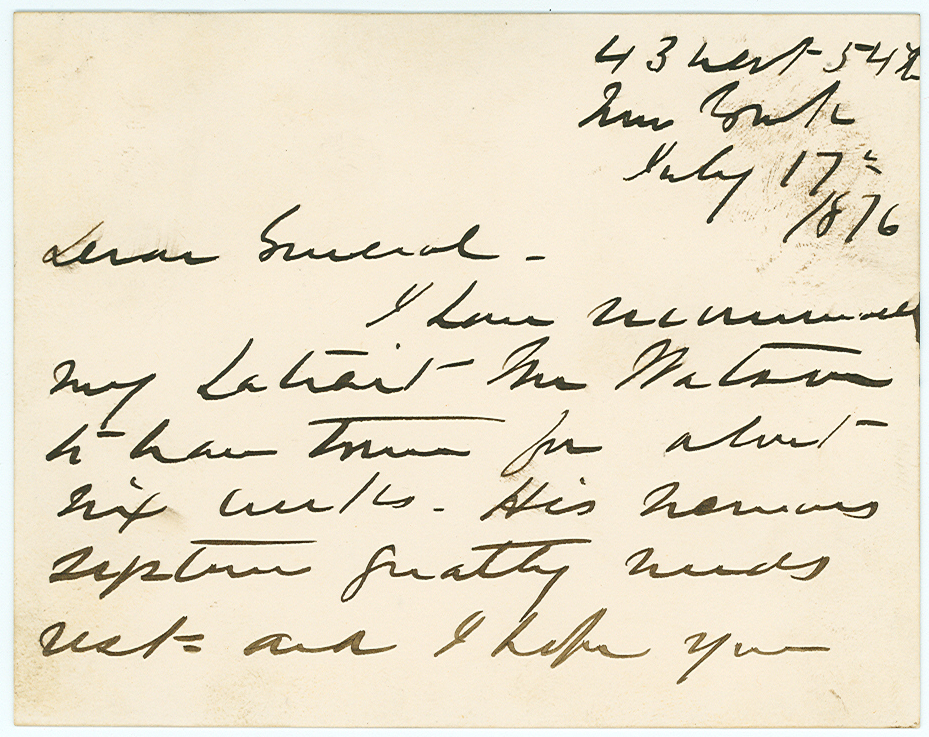 43 West 54th
New York
July 17th
1876
Dear General -
I have recommended
my Patient Mr Watson
to leave town for about
six weeks. His nervous
system greatly needs
rest - and I hope you